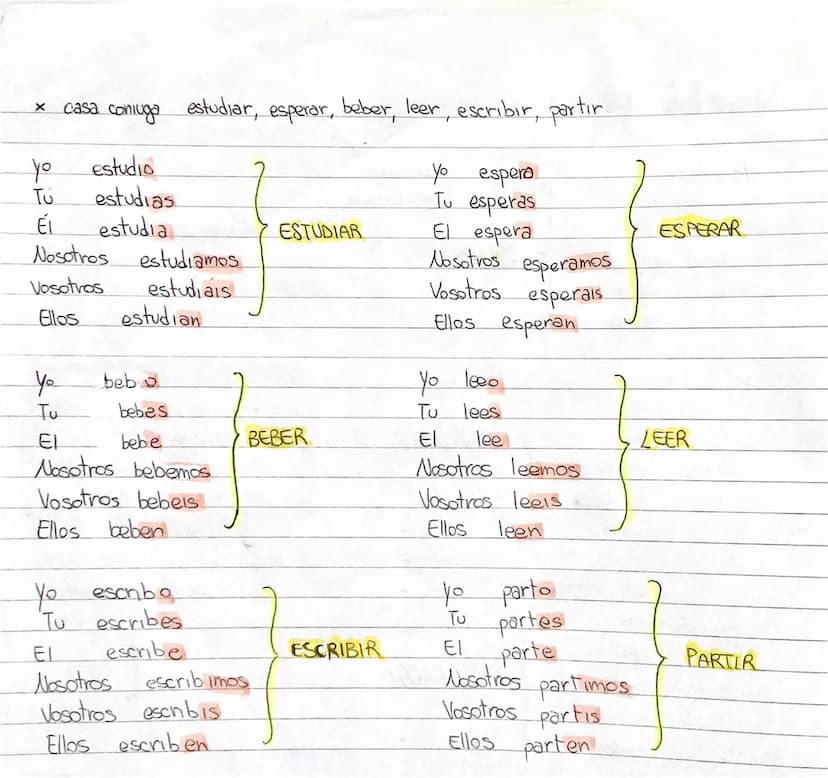 x casa coniuga estudiar, esperar, beber, leer, escribir, partir
Yo estudio
Tú estudias
Él estudia
Nosotros estudiamos
Vosotros estudiáis
Ellos estudian
ESTUDIAR
Yo espero
Tu esperas
El espera
Nosotros esperamos
Vosotros esperais
Ellos esperan
ESPERAR
Yo bebo
Tu bebes
El bebe
Nosotros bebemos
Vosotros bebeis
Ellos beben
BEBER
Yo leeo
Tu lees
El lee
Nosotros leemos
Vosotros leeis
Ellos leen
LEER
Yo escribo
Tu escribes
El escribe
Nosotros escribimos
Vosotros escribis
Ellos escriben
ESCRIBIR
Yo parto
Tu partes
El parte
Nosotros partimos
Vosotros partis
Ellos parten
PARTIR